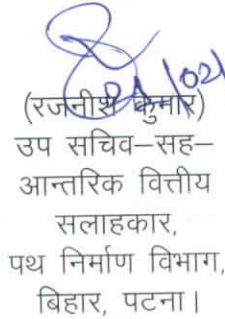 21/02
(रजनीश कुमार)
उप सचिव–सह–
आन्तरिक वित्तीय
सलाहकार,
पथ निर्माण विभाग,
बिहार, पटना।